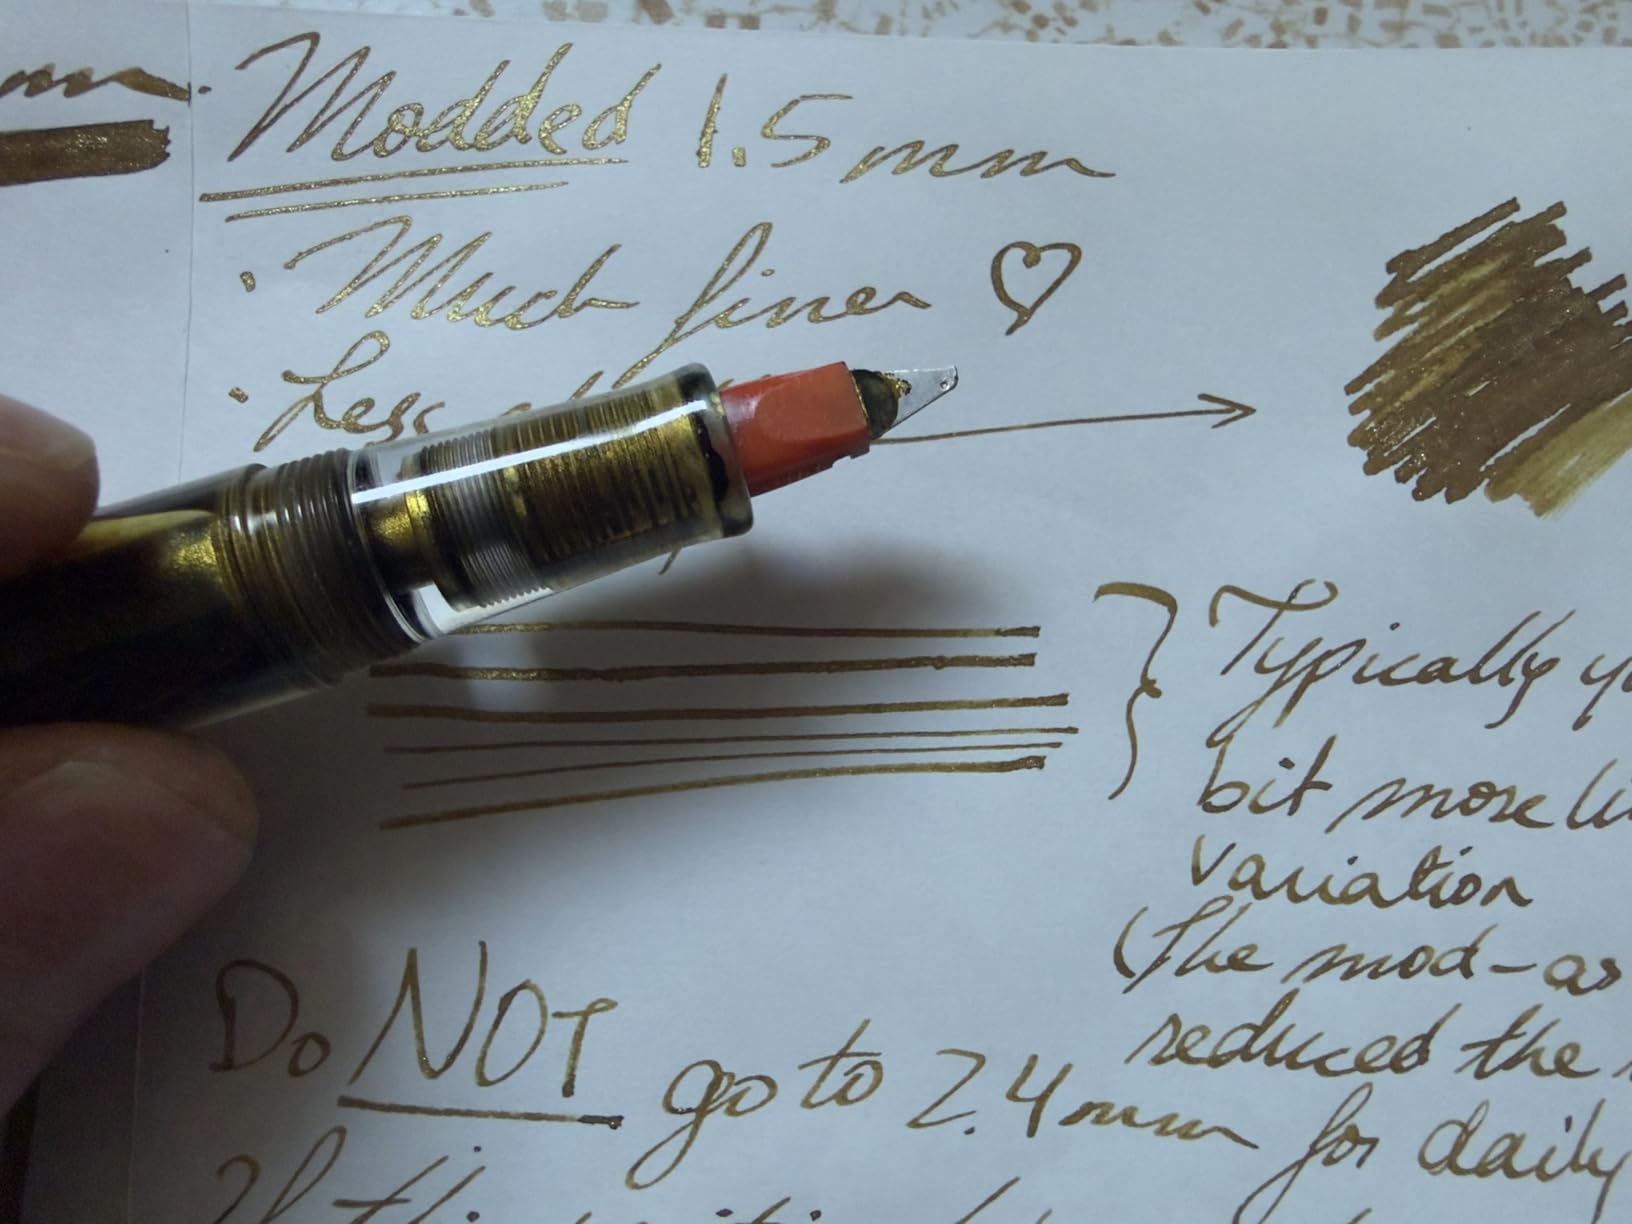 Modded 1.5mm
Much finer ♡
Less
Typically
bit more
variation
(The mod-as
reduced the
Do NOT go to 2.4mm for daily
If this